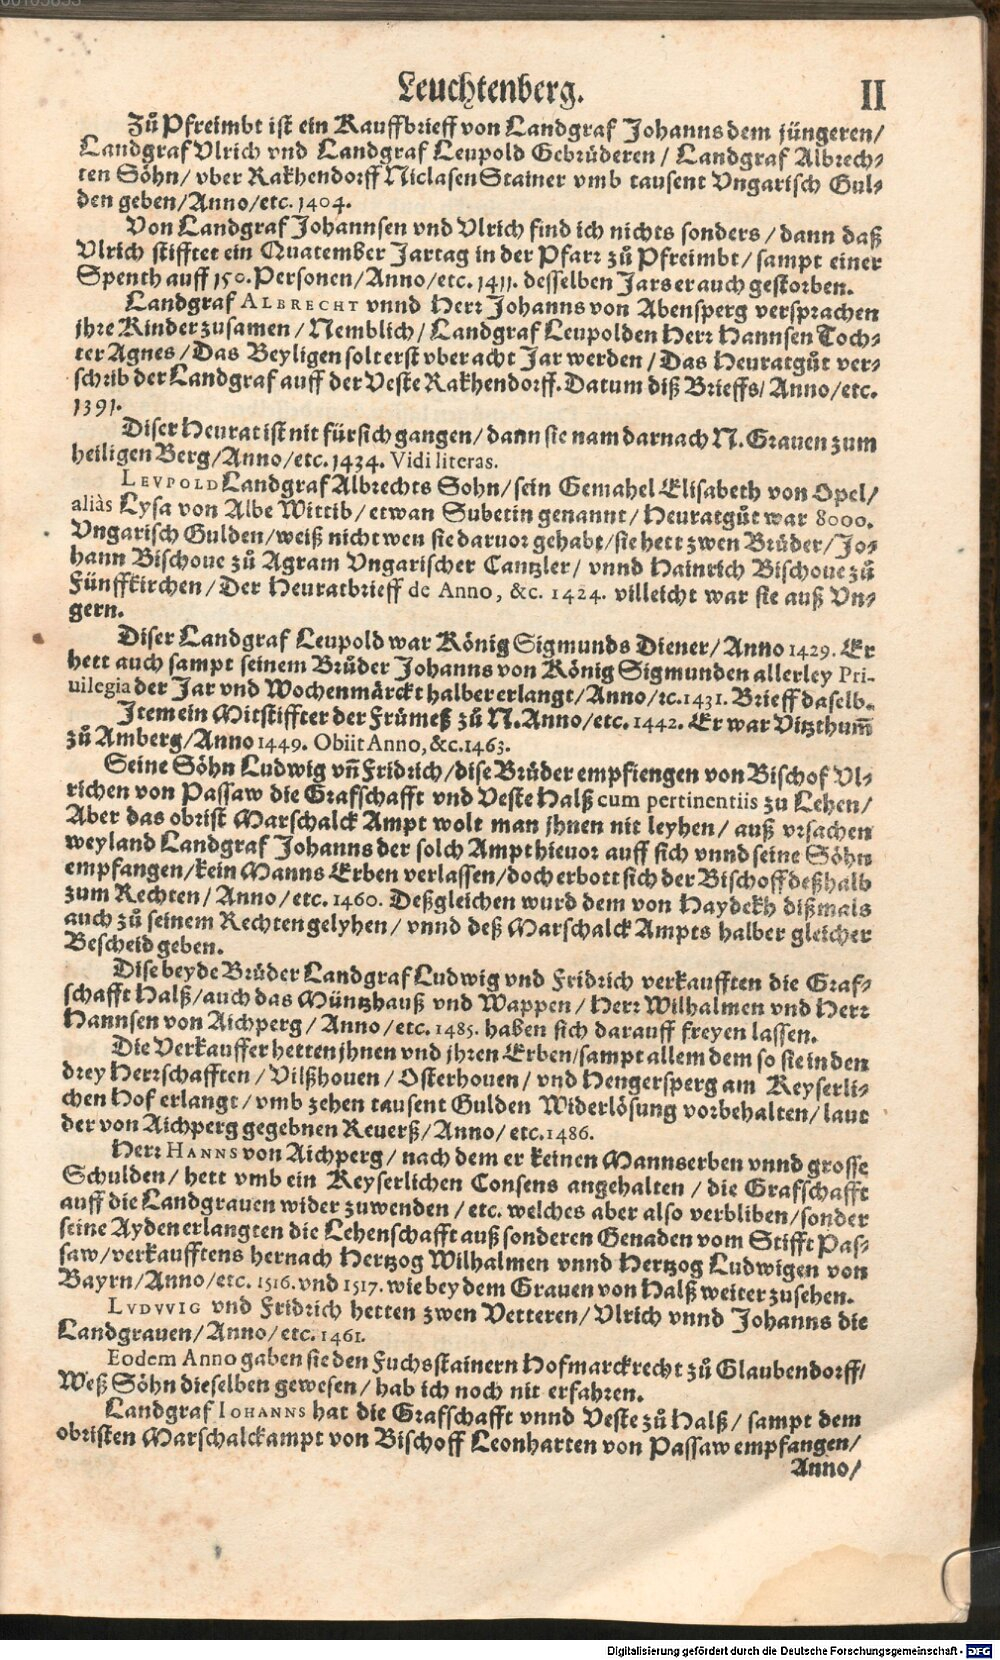 Leuchtenberg. II
Zů Pfreimbt ist ein Kauffbrieff von Landgraf Johanns dem jüngeren/
Landgraf Vlrich vnd Landgraf Leupold Gebrüderen/ Landgraf Albrech-
ten Söhn/ vber Rakhendorff Niclasen Stainer vmb tausent Vngarisch Gul-
den geben/Anno/etc. 1404.
Von Landgraf Johannsen vnd Vlrich find ich nichts sonders/ dann daß
Vlrich stifftet ein Quatember Jartag in der Pfarr zů Pfreimbt/ sampt einer
Spenth auff 150. Personen/Anno/etc. 1411. desselben Jars er auch gestorben.
Landgraf ALBRECHT vnnd Herr Johanns von Abensperg versprachen
jhre Kinder zusamen/ Nemblich/ Landgraf Leupolden Herr Hannsen Toch-
ter Agnes/ Das Beyligen solt erst vber acht Jar werden/ Das Heuratgůt ver-
schrib der Landgraf auff der Veste Rakhendorff. Datum diß Brieffs/ Anno/etc.
1391.
Diser Heurat ist nit für sich gangen/ dann sie nam darnach N. Grauen zum
heiligen Berg/Anno/etc. 1434. Vidi literas.
LEVPOLD Landgraf Albrechts Sohn/ sein Gemahel Elisabeth von Opel/
aliàs Lysa von Albe Wittib/ etwan Subetin genannt/ Heuratgůt war 8000.
Vngarisch Gulden/weiß nicht wen sie daruor gehabt/sie hett zwen Brüder/Jo-
hann Bischoue zů Agram Vngarischer Cantzler/ vnnd Hainrich Bischoue zů
Fünffkirchen/ Der Heuratbrieff de Anno, &c. 1424. villeicht war sie auß Vn-
gern.
Diser Landgraf Leupold war König Sigmunds Diener/ Anno 1429. Er
hett auch sampt seinem Brůder Johanns von König Sigmunden allerley Pri-
uilegia der Jar vnd Wochenmärckt halber erlangt/Anno/ꝛc. 1431. Brieff daselb.
Item ein Mitstiffter der Frümeß zů N. Anno/etc. 1442. Er war Vitzthum̃
zů Amberg/Anno 1449. Obiit Anno, &c. 1463.
Seine Söhn Ludwig vñ Fridrich/dise Brüder empfiengen von Bischof Vl-
richen von Passaw die Grafschafft vnd Veste Halß cum pertinentiis zu Lehen/
Aber das obrist Marschalck Ampt wolt man jhnen nit leyhen/ auß vrsachen
weyland Landgraf Johanns der solch Ampt hieuor auff sich vnnd seine Söhn
empfangen/kein Manns Erben verlassen/doch erbott sich der Bischoff deßhalb
zum Rechten/ Anno/etc. 1460. Deßgleichen wurd dem von Haydekh dißmals
auch zů seinem Rechten gelyhen/ vnnd deß Marschalck Ampts halber gleicher
Bescheid geben.
Dise beyde Brüder Landgraf Ludwig vnd Fridrich verkaufften die Graf-
schafft Halß/auch das Müntzhauß vnd Wappen/ Herr Wilhalmen vnd Herr
Hannsen von Aichperg/ Anno/etc. 1485. haben sich darauff freyen lassen.
Die Verkauffer hetten jhnen vnd jhren Erben/sampt allem dem so sie in den
drey Herrschafften/Vilßhouen/Osterhouen/ vnd Hengersperg am Keyserli-
chen Hof erlangt/ vmb zehen tausent Gulden Widerlösung vorbehalten/ laut
der von Aichperg gegebnen Reuerß/Anno/etc. 1486.
Herr HANNS von Aichperg/ nach dem er keinen Mannserben vnnd grosse
Schulden/ hett vmb ein Keyserlichen Consens angehalten/ die Grafschafft
auff die Landgrauen wider zuwenden/ etc. welches aber also verbliben/sonder
seine Ayden erlangten die Lehenschafft auß sonderen Genaden vom Stifft Pas-
saw/verkaufftens hernach Hertzog Wilhalmen vnnd Hertzog Ludwigen von
Bayrn/Anno/etc. 1516. vnd 1517. wie bey dem Grauen von Halß weiter zusehen.
LVDVVIG vnd Fridrich hetten zwen Vetteren/ Vlrich vnnd Johanns die
Landgrauen/ Anno/etc. 1461.
Eodem Anno gaben sie den Fuchsstainern Hofmarckrecht zů Glaubendorff/
Weß Söhn dieselben gewesen/ hab ich noch nit erfahren.
Landgraf IOHANNS hat die Grafschafft vnnd Veste zů Halß/ sampt dem
obristen Marschalckampt von Bischoff Leonharten von Passaw empfangen/
Anno/
Digitalisierung gefördert durch die Deutsche Forschungsgemeinschaft - DFG